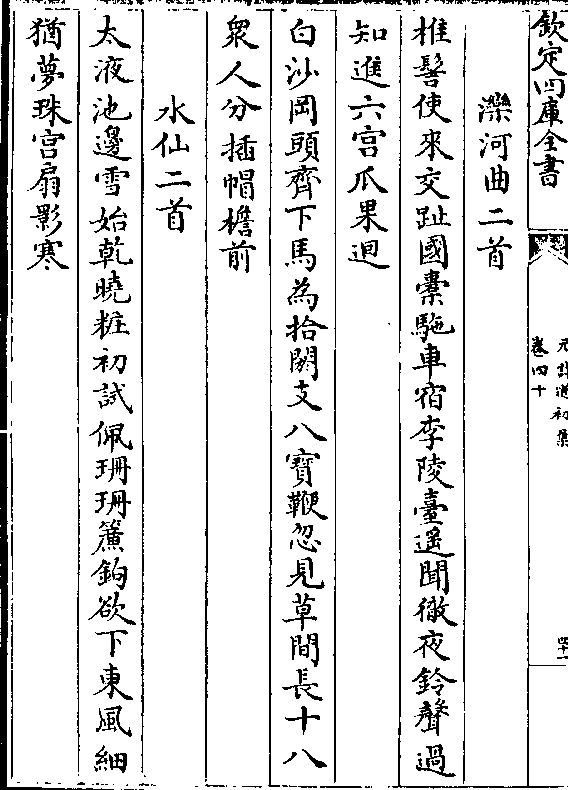 欽定四庫全書
卷四十
灤河曲二首
椎髻使來交趾國橐駞車宿李陵臺遥聞徹夜鈴聲過
知進六宫瓜果迴
白沙岡頭齊下馬為拾閼支八寶鞭忽見草間長十八
衆人分插帽檐前
水仙二首
太液池邊雪始乾曉粧初試佩珊珊簾鉤欲下東風細
猶夢珠宫扇影寒